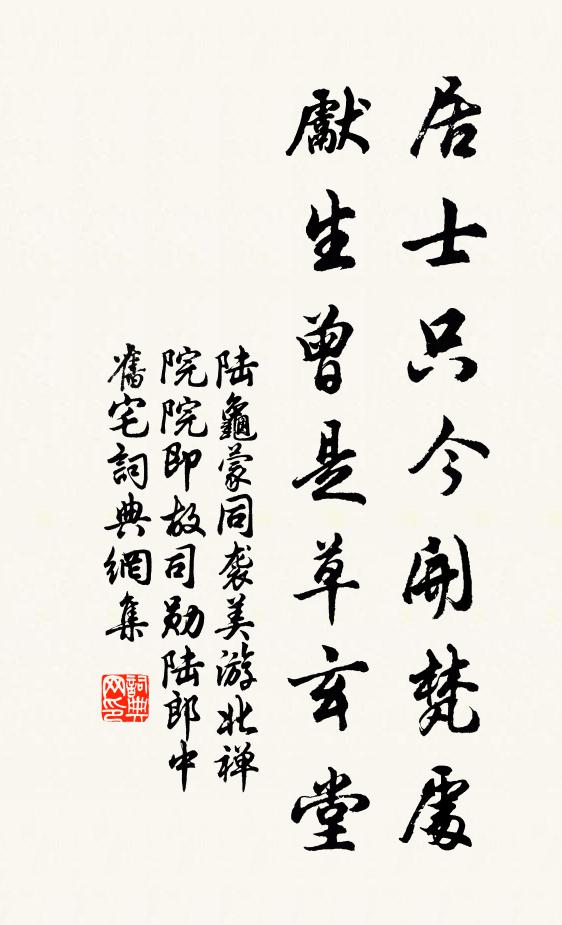 居士只今開梵處
獻生曾是草玄堂
陆龜蒙同袭美游北禅
院院即故司勋陆郎中
舊宅詞典網集
詞典网印